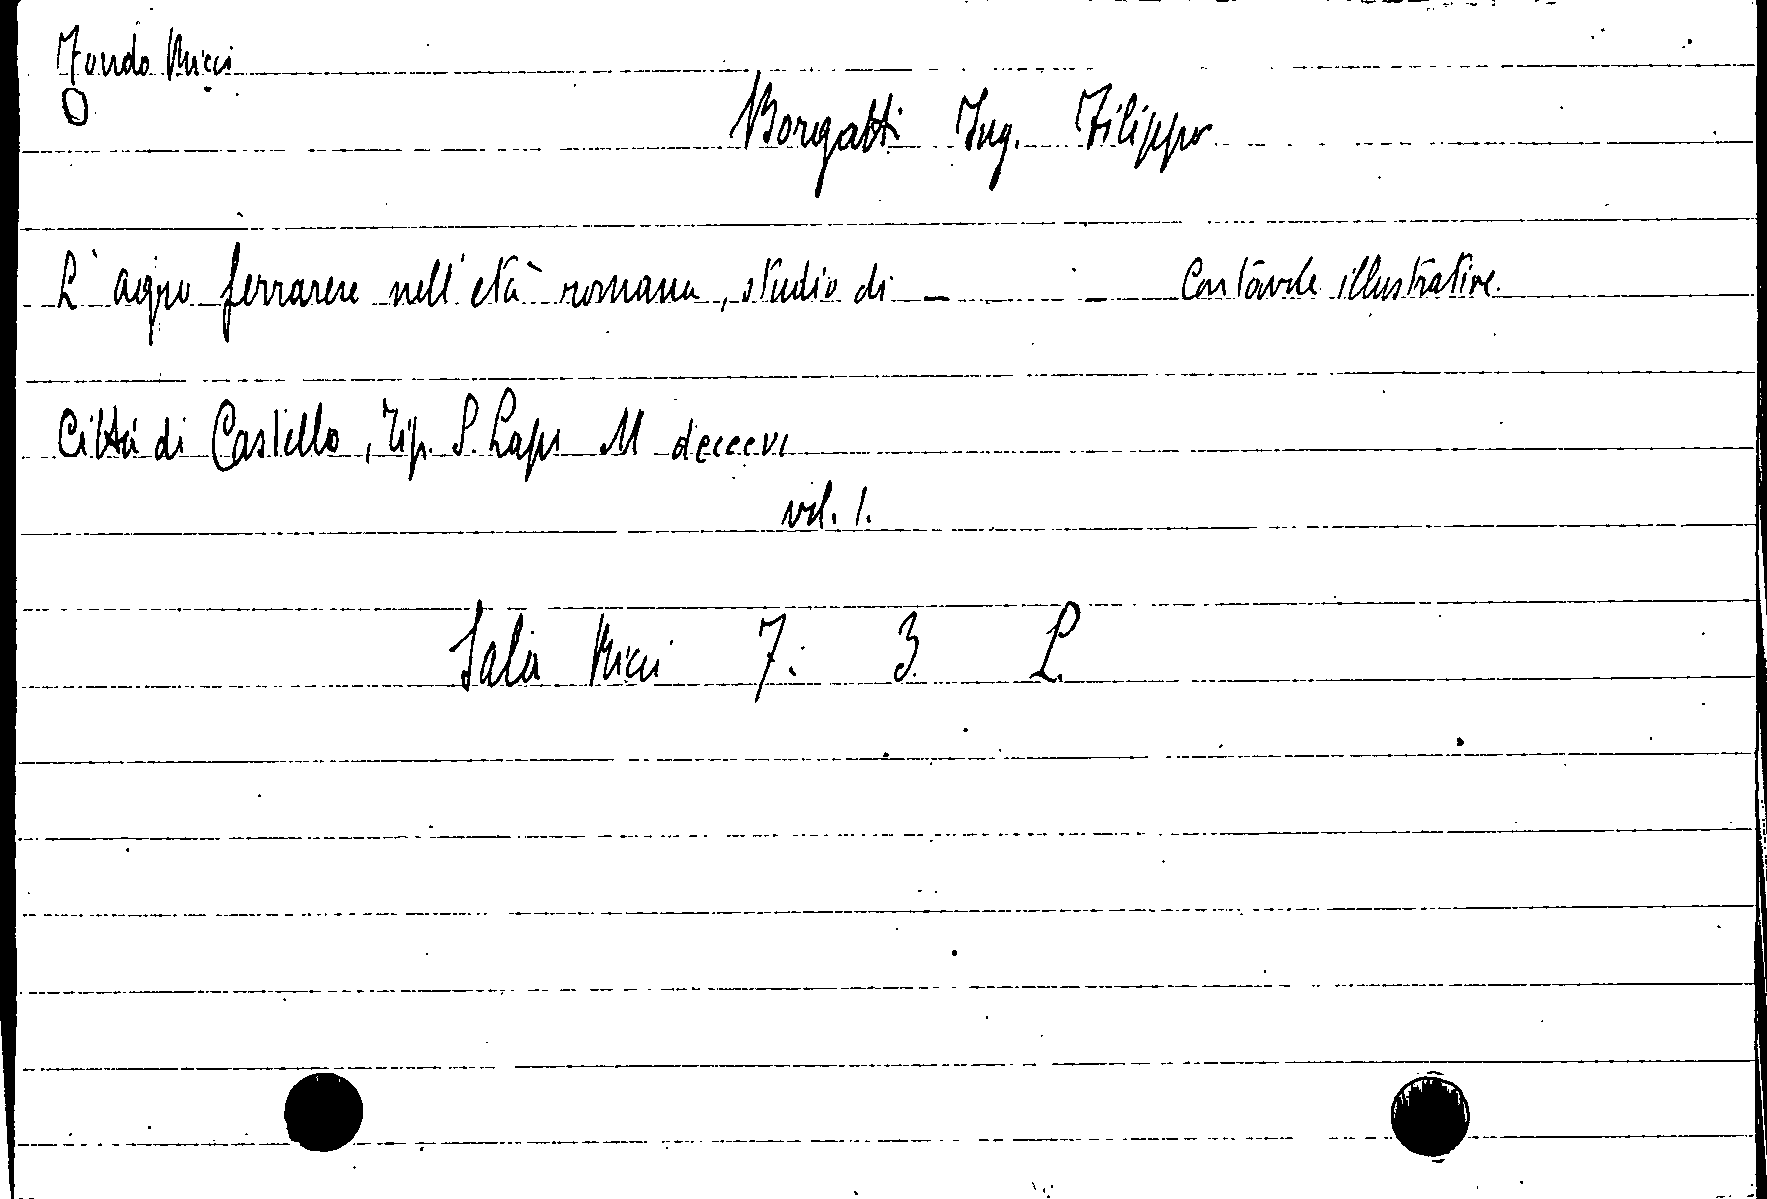 Fondo Ricci
O
Borgatti Ing. Filippo
L'agro ferrarese nell'età romana, studio di — — Con tavole illustrative.
Città di Castello, Tip. S. Lapi M dccccvi
vol. 1.
Sala Ricci 7. 3. L.